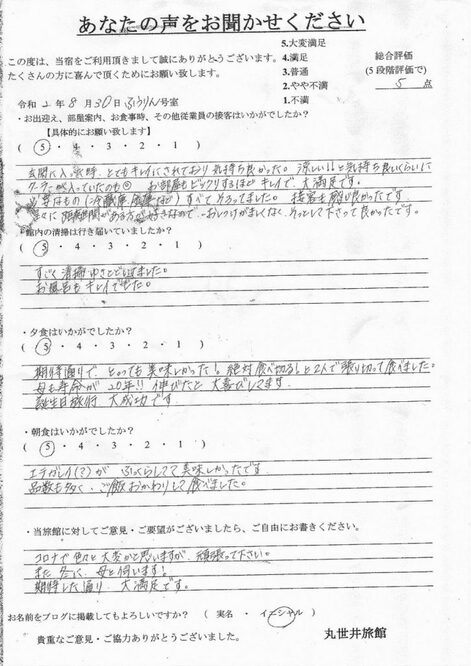 あなたの声をお聞かせください
この度は、当宿をご利用頂きまして誠にありがとうございます。
たくさんの方に喜んで頂くためにお願い致します。
5.大変満足
4.満足
3.普通
2.やや不満
1.不満
総合評価
(5段階評価で)
5 点
令和 2 年 8 月 30 日 ふうりん 号室
・お出迎え、部屋案内、お食事時、その他従業員の接客はいかがでしたか?
【具体的にお願い致します】
( 5 ・ 4 ・ 3 ・ 2 ・ 1 )
玄関に入った時、とてもキレイにされており気持ち良かった。涼しい!!と気持ち良いくらいに
クーラーが入っていたのも◎ お部屋もビックリするほどキレイで、大満足です。
必要なもの(冷蔵庫、など)すべてそろってました。接客も良かったです
がある方が好きなので、おしつけがましくなく、そっとして下さって良かったです。
・館内の清掃は行き届いていましたか?
( 5 ・ 4 ・ 3 ・ 2 ・ 1 )
すごく清掃ゆきとどいてました。
お風呂もキレイでした。
・夕食はいかがでしたか?
( 5 ・ 4 ・ 3 ・ 2 ・ 1 )
期待通りで、とっても美味しかった!絶対食べ切る!と2人で張り切って食べました。
母も寿命が20年!!伸びたと大喜びしてます。
誕生日旅行 大成功です
・朝食はいかがでしたか?
( 5 ・ 4 ・ 3 ・ 2 ・ 1 )
エテガレイ(?)が ふっくらしてて美味しかったです
品数も多く、ご飯おかわりして食べました。
・当旅館に対してご意見・ご要望がございましたら、ご自由にお書きください。
コロナで色々と大変かと思いますが、頑張って下さい。
また冬に、母と伺います!
期待した通り、大満足です。
お名前をブログに掲載してもよろしいですか? ( 実名 ・ イニシャル )
貴重なご意見・ご協力ありがとうございました。
丸世井旅館